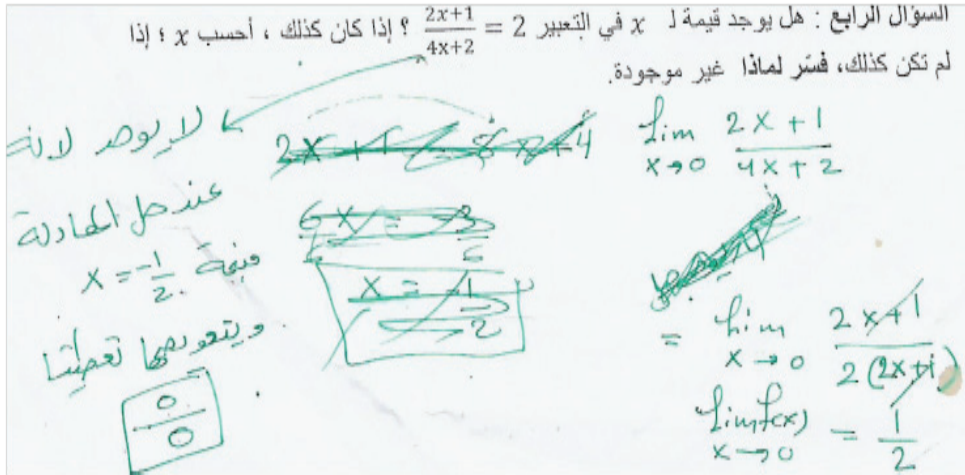 السؤال الرابع : هل يوجد قيمة لـ x في التعبير 2 = \frac{2x+1}{4x+2} ؟ إذا كان كذلك ، أحسب x ؛ إذا
لم تكن كذلك، فسّر لماذا غير موجودة.
لا يوجد لانه
عند حل المعادلة
قيمة x = \frac{-1}{2}
وبتعويضها تعطينا
\frac{0}{0}
2x + 1 = 8x + 4
\frac{6}{6}x = \frac{-3}{6}
x = \frac{-1}{2}
\lim_{x→0} \frac{2x+1}{4x+2}
= \lim_{x→0} \frac{2x+1}{2(2x+1)}
\lim_{x→0} f(x) = \frac{1}{2}